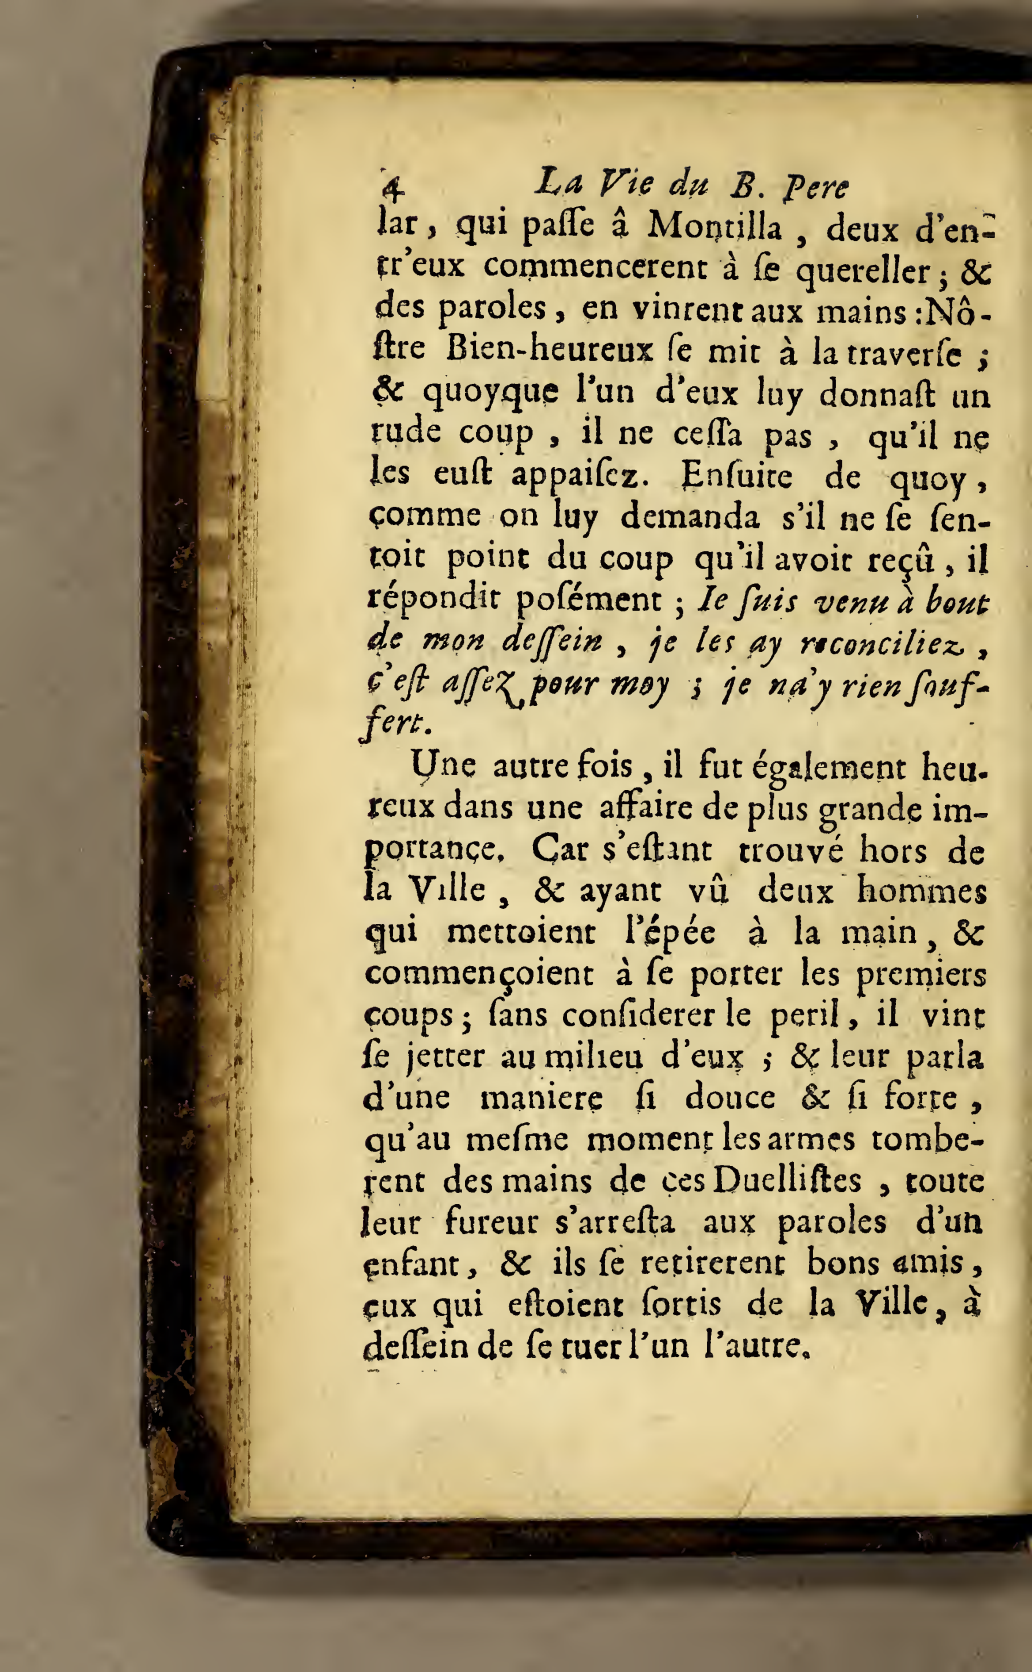 4 La Vie du B. Pere
lar, qui paſſe â Montilla, deux d'en-
tr'eux commencerent à ſe quereller; &
des paroles, en vinrent aux mains: Nô-
ſtre Bien-heureux ſe mit à la traverſe;
& quoyque l'un d'eux luy donnaſt un
rude coup, il ne ceſſa pas, qu'il ne
les euſt appaiſez. Enſuite de quoy,
comme on luy demanda s'il ne ſe ſen-
toit point du coup qu'il avoit reçû, il
répondit poſément; Ie ſuis venu à bout
de mon deſſein, je les ay reconciliez,
c'eſt aſſez pour moy; je na'y rien ſouf-
fert.
Une autre fois, il fut également heu-
reux dans une affaire de plus grande im-
portance. Car s'eſtant trouvé hors de
la Ville, & ayant vû deux hommes
qui mettoient l'épée à la main, &
commençoient à ſe porter les premiers
coups; ſans conſiderer le peril, il vint
ſe jetter au milieu d'eux; & leur parla
d'une maniere ſi douce & ſi forte,
qu'au meſme moment les armes tombe-
rent des mains de ces Duelliſtes, toute
leur fureur s'arreſta aux paroles d'un
enfant, & ils ſe retirerent bons amis,
eux qui eſtoient ſortis de la Ville, à
deſſein de ſe tuer l'un l'autre.